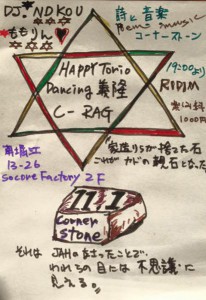 DJ. NDKOU
ももりん
詩と音楽
Poem music
コーナーストーン
19:00より
HAPPY Torio
Dancing 義隆
C-RAG
RIDIM
1000円
家造りらが捨てた石
これが カドの親石となった
南堀江
13-26
Socore Factory 2F
11.1
corner
stone
それは JAHのなさったことで、
われらの目には 不思議に
見える。